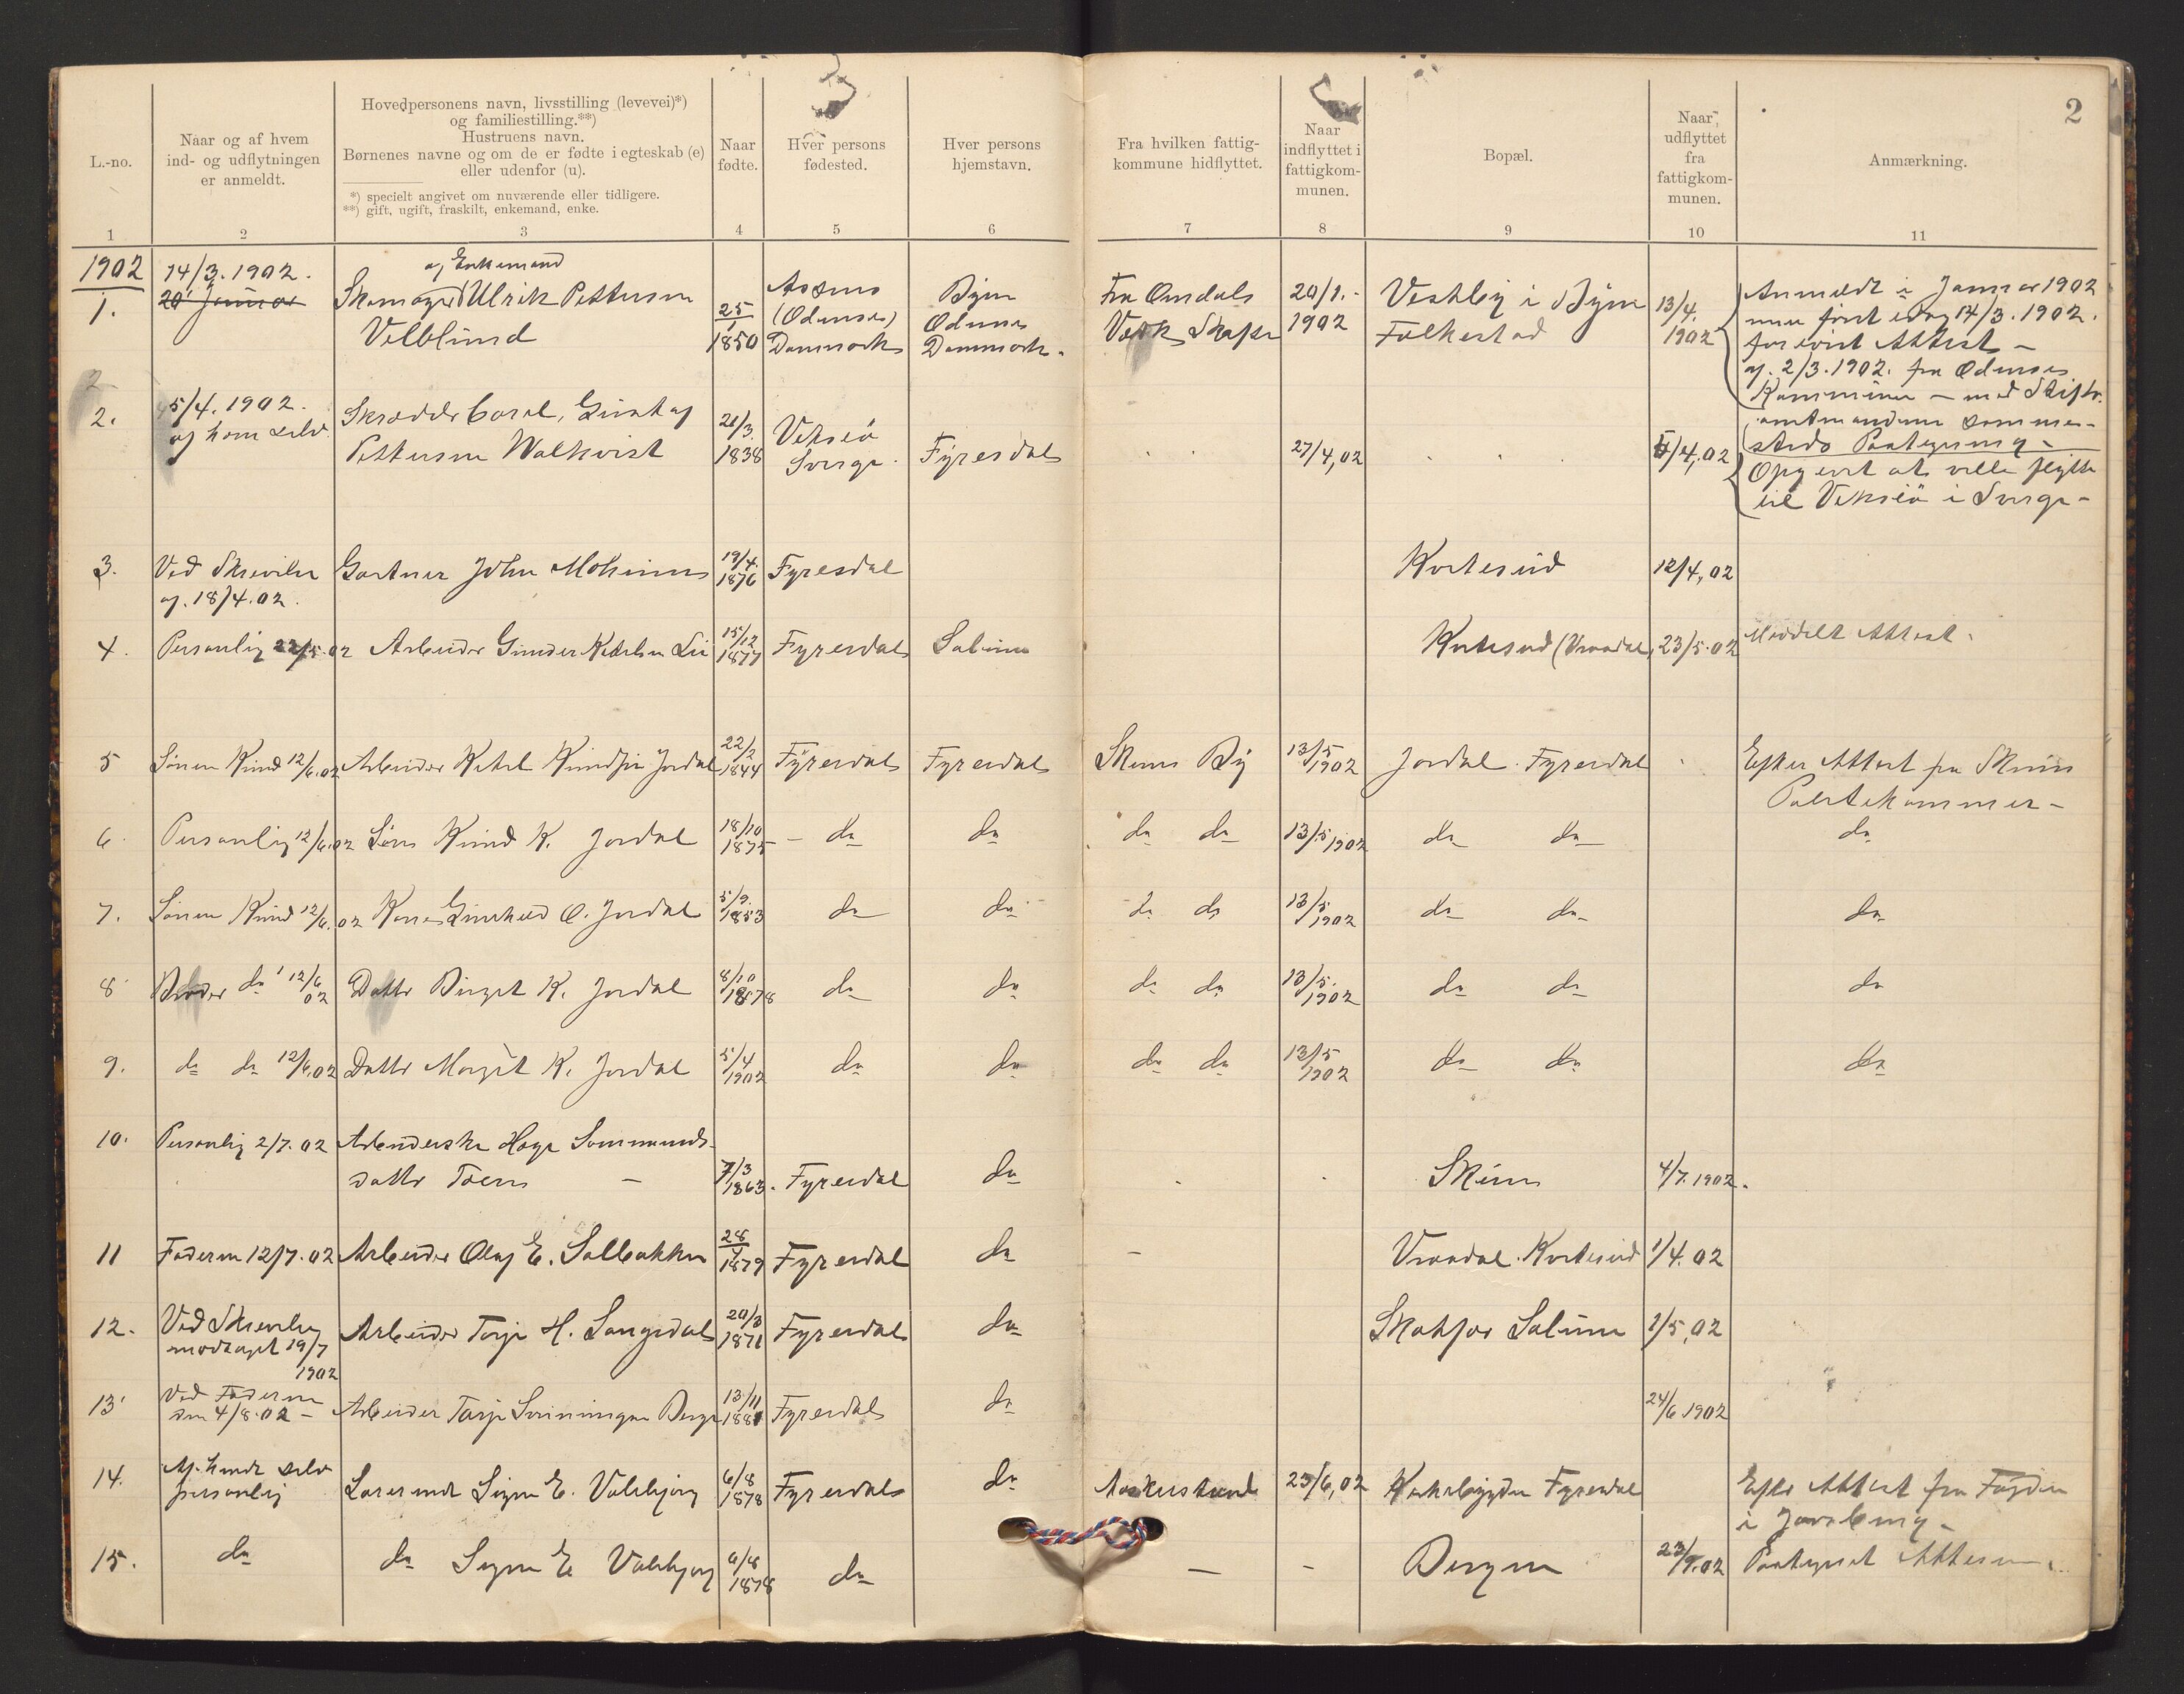 2
L.-no.
Naar og af hvem
ind- og udflytningen
er anmeldt.
Hovedpersonens navn, livsstilling (levevei)*)
og familiestilling.**)
Hustruens navn.
Børnenes navne og om de er fødte i egteskab (e)
eller udenfor (u).
*) specielt angivet om nuværende eller tidligere.
**) gift, ugift, fraskilt, enkemand, enke.
Naar
fødte.
Hver persons
fødested.
Hver persons
hjemstavn.
Fra hvilken fattig-
kommune hidflyttet.
Naar
indflyttet i
fattigkom-
munen.
Bopæl.
Naar
udflyttet
fra
fattigkom-
munen.
Anmærkning.
1 2 3 4 5 6 7 8 9 10 11
1902
1.
14/3. 1902.
20 Januar
og Enkemand
Skomager Ulrik Pettersen
Velblund
25/1 1850
Assens
(Odense)
Danmark
Byen
Odense
Danmark.
Fra Omdals
Værk Skafse
20/1.-
1902
Vestby i Byen
Folkestad
13/4.
1902
Anmeldt i Januar 1902
men først idag 14/3. 1902.
forevist Attest –
af. 2/3. 1902. fra Odense
Kommune – med Stifts-
amtmanden sammes-
steds Paategning –
2
2.
5/4. 1902.
af ham selv
Skrædder Carl, Gustaf
Pettersen Walkvist
21/3. 1838
Veksiö
Sverge.
Fyresdal
27/4, 02
5/4, 02
Opgivet at ville flytte
til Veksiö i Sverge –
3.
Ved Skrivelse
af. 18/4. 02.
Gartner John Moheim
19/4. 1876
Fyresdal
Kvitesund
12/4, 02
4.
Personlig 22/5. 02
Arbeider Gunder Ketilsen Lii
15/12 1877
Fyresdal
Solum
Kvitesud (Vraadal,
23/5. 02
Meddelt Attest.
5
Sønen Knud 12/6. 02
Arbeider Ketil Knudsen Jordal
22/2 1844
Fyresdal
Fyresdal
Skiens By
13/5 1902
Jordal Fyresdal
Efter Attest fra Skiens
Politikammer –
6
Personlig 12/6. 02
Søns Knud K. Jordal
18/10 1875
– do
do
do do
13/5 1902
do do
do
7.
Sønen Knud 12/6. 02
Kone Gunhild O. Jordal
5/9. 1853
do
do
do do
13/5 1902
do do
do
8
Broder do 12/6 02
Datter Birgit K. Jordal
8/10 1878
do
do
do do
13/5. 1902
do do
do
9.
do do 12/6. 02
Datter Margit K. Jordal
5/4 1902
do
do
do do
13/5 1902
do do
do
10.
Personlig 2/7. 02
Arbeiderske Hæge Sommunds-
datter Toen –
7/3 1863.
Fyresdal
do
Skien
4/7. 1902.
11
Faderen 12/7. 02
Arbeider Olaf E. Solbakken
28/4 1879
Fyresdal
do
–
Vraadal. Kvitesud
1/4. 02
12.
Ved Skrivelse
modtaget 19/7
1902
Arbeider Torje H. Langsdal
20/3 1871
Fyresdal
do
Skotfos Solum
1/5, 02
13
Ved Faderen
den 4/8. 02 –
Arbeider Torje Berge
13/11 1881
Fyresdal
do
24/6. 1902
14.
Af hende selv
personlig
Lærerinde Signe E. Valebjørg
6/8 1878
Fyresdal
do
23/6, 02
Kirkebygden Fyresdal
Efter Attest fra Fogden
i Jarlsberg –
15.
do
do Signe E Valebjørg
6/8 1878
do
–
–
Bergen
23/9. 02
Paategnet Attesten.